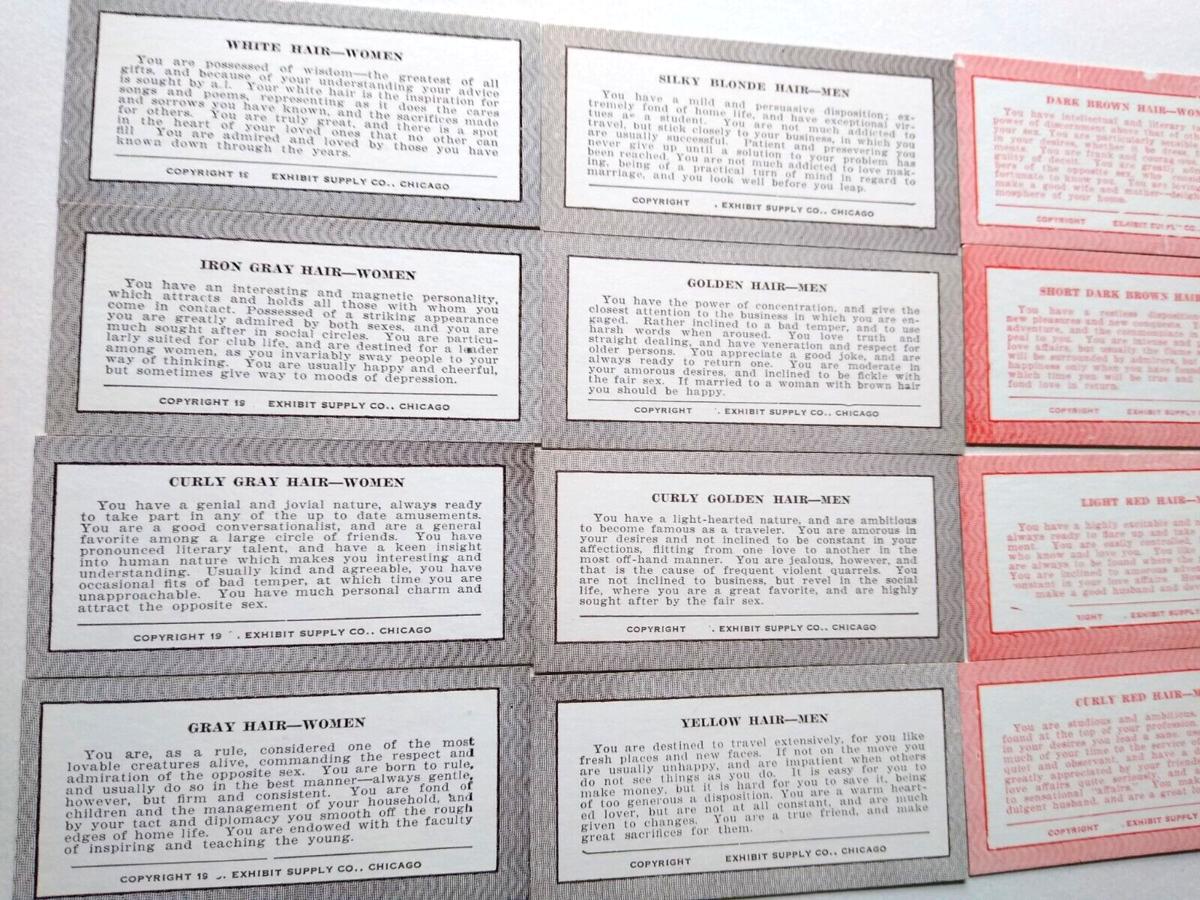 WHITE HAIR—WOMEN
You are possessed of wisdom—the greatest of all
gifts, and because of your understanding your advice
is sought by a.l. Your white hair is the inspiration for
songs and poems, representing as it does the cares
and sorrows you have known, and the sacrifices made
for others. You are truly great, and there is a spot
in the heart of your loved ones that no other can
fill You are admired and loved by those you have
known down through the years.
COPYRIGHT EXHIBIT SUPPLY CO., CHICAGO
IRON GRAY HAIR—WOMEN
You have an interesting and magnetic personality,
which attracts and holds all those with whom you
come in contact. Possessed of a striking appearance
you are greatly admired by both sexes, and you are
much sought after in social circles. You are particu-
larly suited for club life, and are destined for a leader
among women, as you invariably sway people to your
way of thinking. You are usually happy and cheerful,
but sometimes give way to moods of depression.
COPYRIGHT 19 EXHIBIT SUPPLY CO., CHICAGO
CURLY GRAY HAIR—WOMEN
You have a genial and jovial nature, always ready
to take part in any of the up to date amusements.
You are a good conversationalist, and are a general
favorite among a large circle of friends. You have
pronounced literary talent, and have a keen insight
into human nature which makes you interesting and
understanding. Usually kind and agreeable, you have
occasional fits of bad temper, at which time you are
unapproachable. You have much personal charm and
attract the opposite sex.
COPYRIGHT 19 . EXHIBIT SUPPLY CO., CHICAGO
GRAY HAIR—WOMEN
You are, as a rule, considered one of the most
lovable creatures alive, commanding the respect and
admiration of the opposite sex. You are born to rule,
and usually do so in the best manner—always gentle,
however, but firm and consistent. You are fond of
children and the management of your household, and
by your tact and diplomacy you smooth off the rough
edges of home life. You are endowed with the faculty
of inspiring and teaching the young.
COPYRIGHT 19 . EXHIBIT SUPPLY CO., CHICAGO
SILKY BLONDE HAIR—MEN
You have a mild and persuasive disposition; ex-
tremely fond of home life, and have exceptional vir-
tues as a student. You are not much addicted to
travel, but stick closely to your business, in which you
are usually successful. Patient and presevering you
never give up until a solution to your problem has
been reached. You are not much addicted to love mak-
ing, being of a practical turn of mind in regard to
marriage, and you look well before you leap.
COPYRIGHT . EXHIBIT SUPPLY CO., CHICAGO
GOLDEN HAIR—MEN
You have the power of concentration, and give the
closest attention to the business in which you are en-
gaged. Rather inclined to a bad temper, and to use
harsh words when aroused. You love truth and
straight dealing, and have veneration and respect for
older persons. You appreciate a good joke, and are
always ready to return one. You are moderate in
your amorous desires, and inclined to be fickle with
the fair sex. If married to a woman with brown hair
you should be happy.
COPYRIGHT . EXHIBIT SUPPLY CO., CHICAGO
CURLY GOLDEN HAIR—MEN
You have a light-hearted nature, and are ambitious
to become famous as a traveler. You are amorous in
your desires and not inclined to be constant in your
affections, flitting from one love to another in the
most off-hand manner. You are jealous, however, and
that is the cause of frequent violent quarrels. You
are not inclined to business, but revel in the social
life, where you are a great favorite, and are highly
sought after by the fair sex.
COPYRIGHT . EXHIBIT SUPPLY CO., CHICAGO
YELLOW HAIR—MEN
You are destined to travel extensively, for you like
fresh places and new faces. If not on the move you
are usually unhappy, and are impatient when others
do not see things as you do. It is easy for you to
make money, but it is hard for you to save it, being
of too generous a disposition. You are a warm heart-
ed lover, but are not at all constant, and are much
given to changes. You are a true friend, and make
great sacrifices for them.
COPYRIGHT EXHIBIT SUPPLY CO., CHICAGO
DARK BROWN HAIR—WO
You have intellectual and literary
power of discernment above that of
your sex. You are particularly sensible
in your desires, whether
You are frank and
of the opposite sex,
fortunate to know you. You are
make a good wife and mother—
mosphere of your home.
COPYRIGHT
SHORT DARK BROWN HAI
You have a restless
new pleasures and
adventure, and the
peal to you. You are
love affairs, but
will be
happiness only when you have
which time you will be true and
fond love in return.
COPYRIGHT EXHIBIT SUPPL
LIGHT RED HAIR—
You have a highly excitable and
always ready to flare up and take
ment. You are easily
who know and love you. You
are always to be found where
You are inclined to be
constant in your love affairs.
make a good husband and
EXHIBIT SUPPL
CURLY RED HAIR—M
You are studious and ambitious,
found at the top of your profession
in your desires you lead a sane,
much of your time to the service of
quiet and observant, and have a
greatly appreciated by your friends
love affairs quite seriously, and
to sensational "affairs." You
dulgent husband, and are a great
COPYRIGHT . EXHIBIT SUPPLY